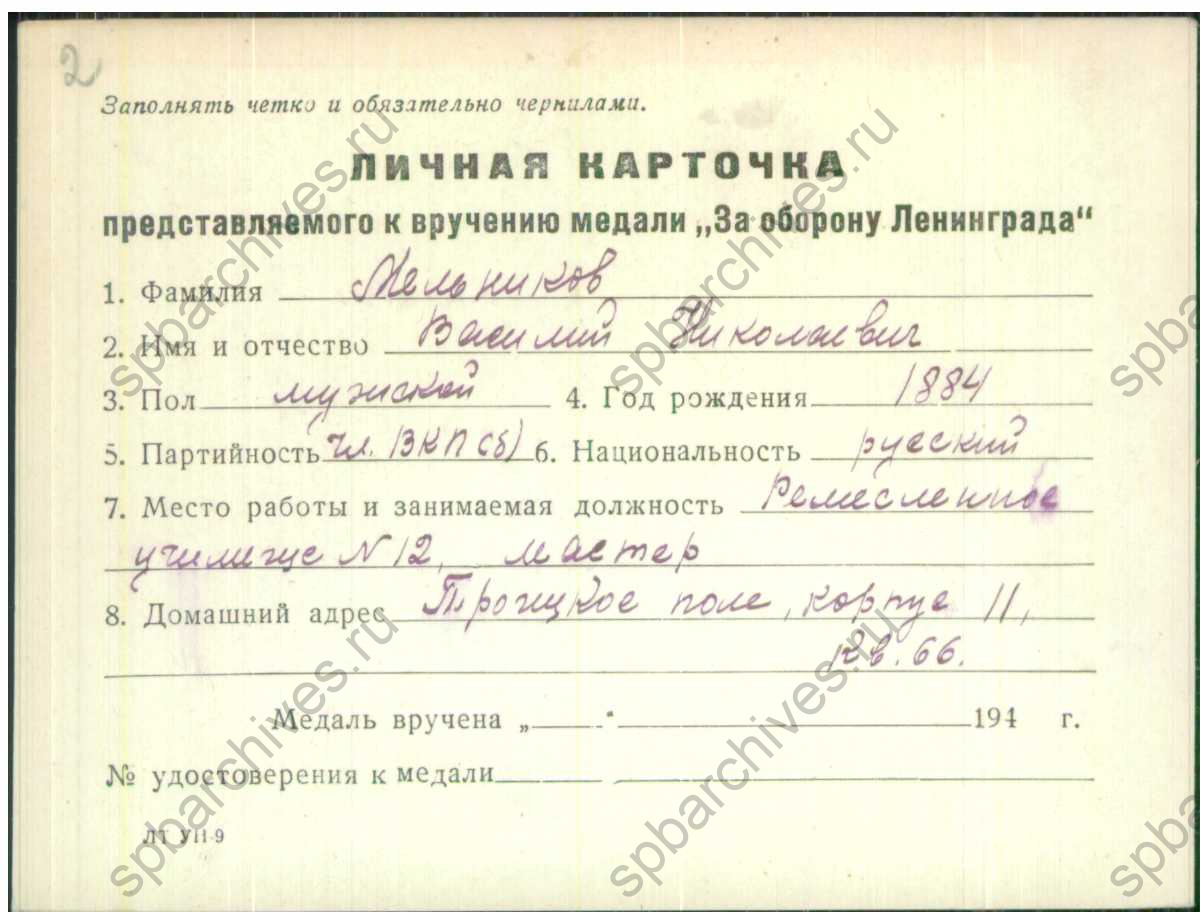 2
Заполнять четко и обязательно чернилами.
ЛИЧНАЯ КАРТОЧКА
представляемого к вручению медали „За оборону Ленинграда“
1. Фамилия Мельников
2. Имя и отчество Василий Николаевич
3. Пол мужской 4. Год рождения 1884
5. Партийность чл. ВКП(б) 6. Национальность русский
7. Место работы и занимаемая должность Ремесленное
училище N 12, мастер
8. Домашний адрес Троицкое поле, корпус 11,
кв. 66.
Медаль вручена „ “ 194 г.
№ удостоверения к медали
ЛТ УП-9
spbarchives.ru
spbarchives.ru
spbarchives.ru
spbarchives.ru
spba
spba